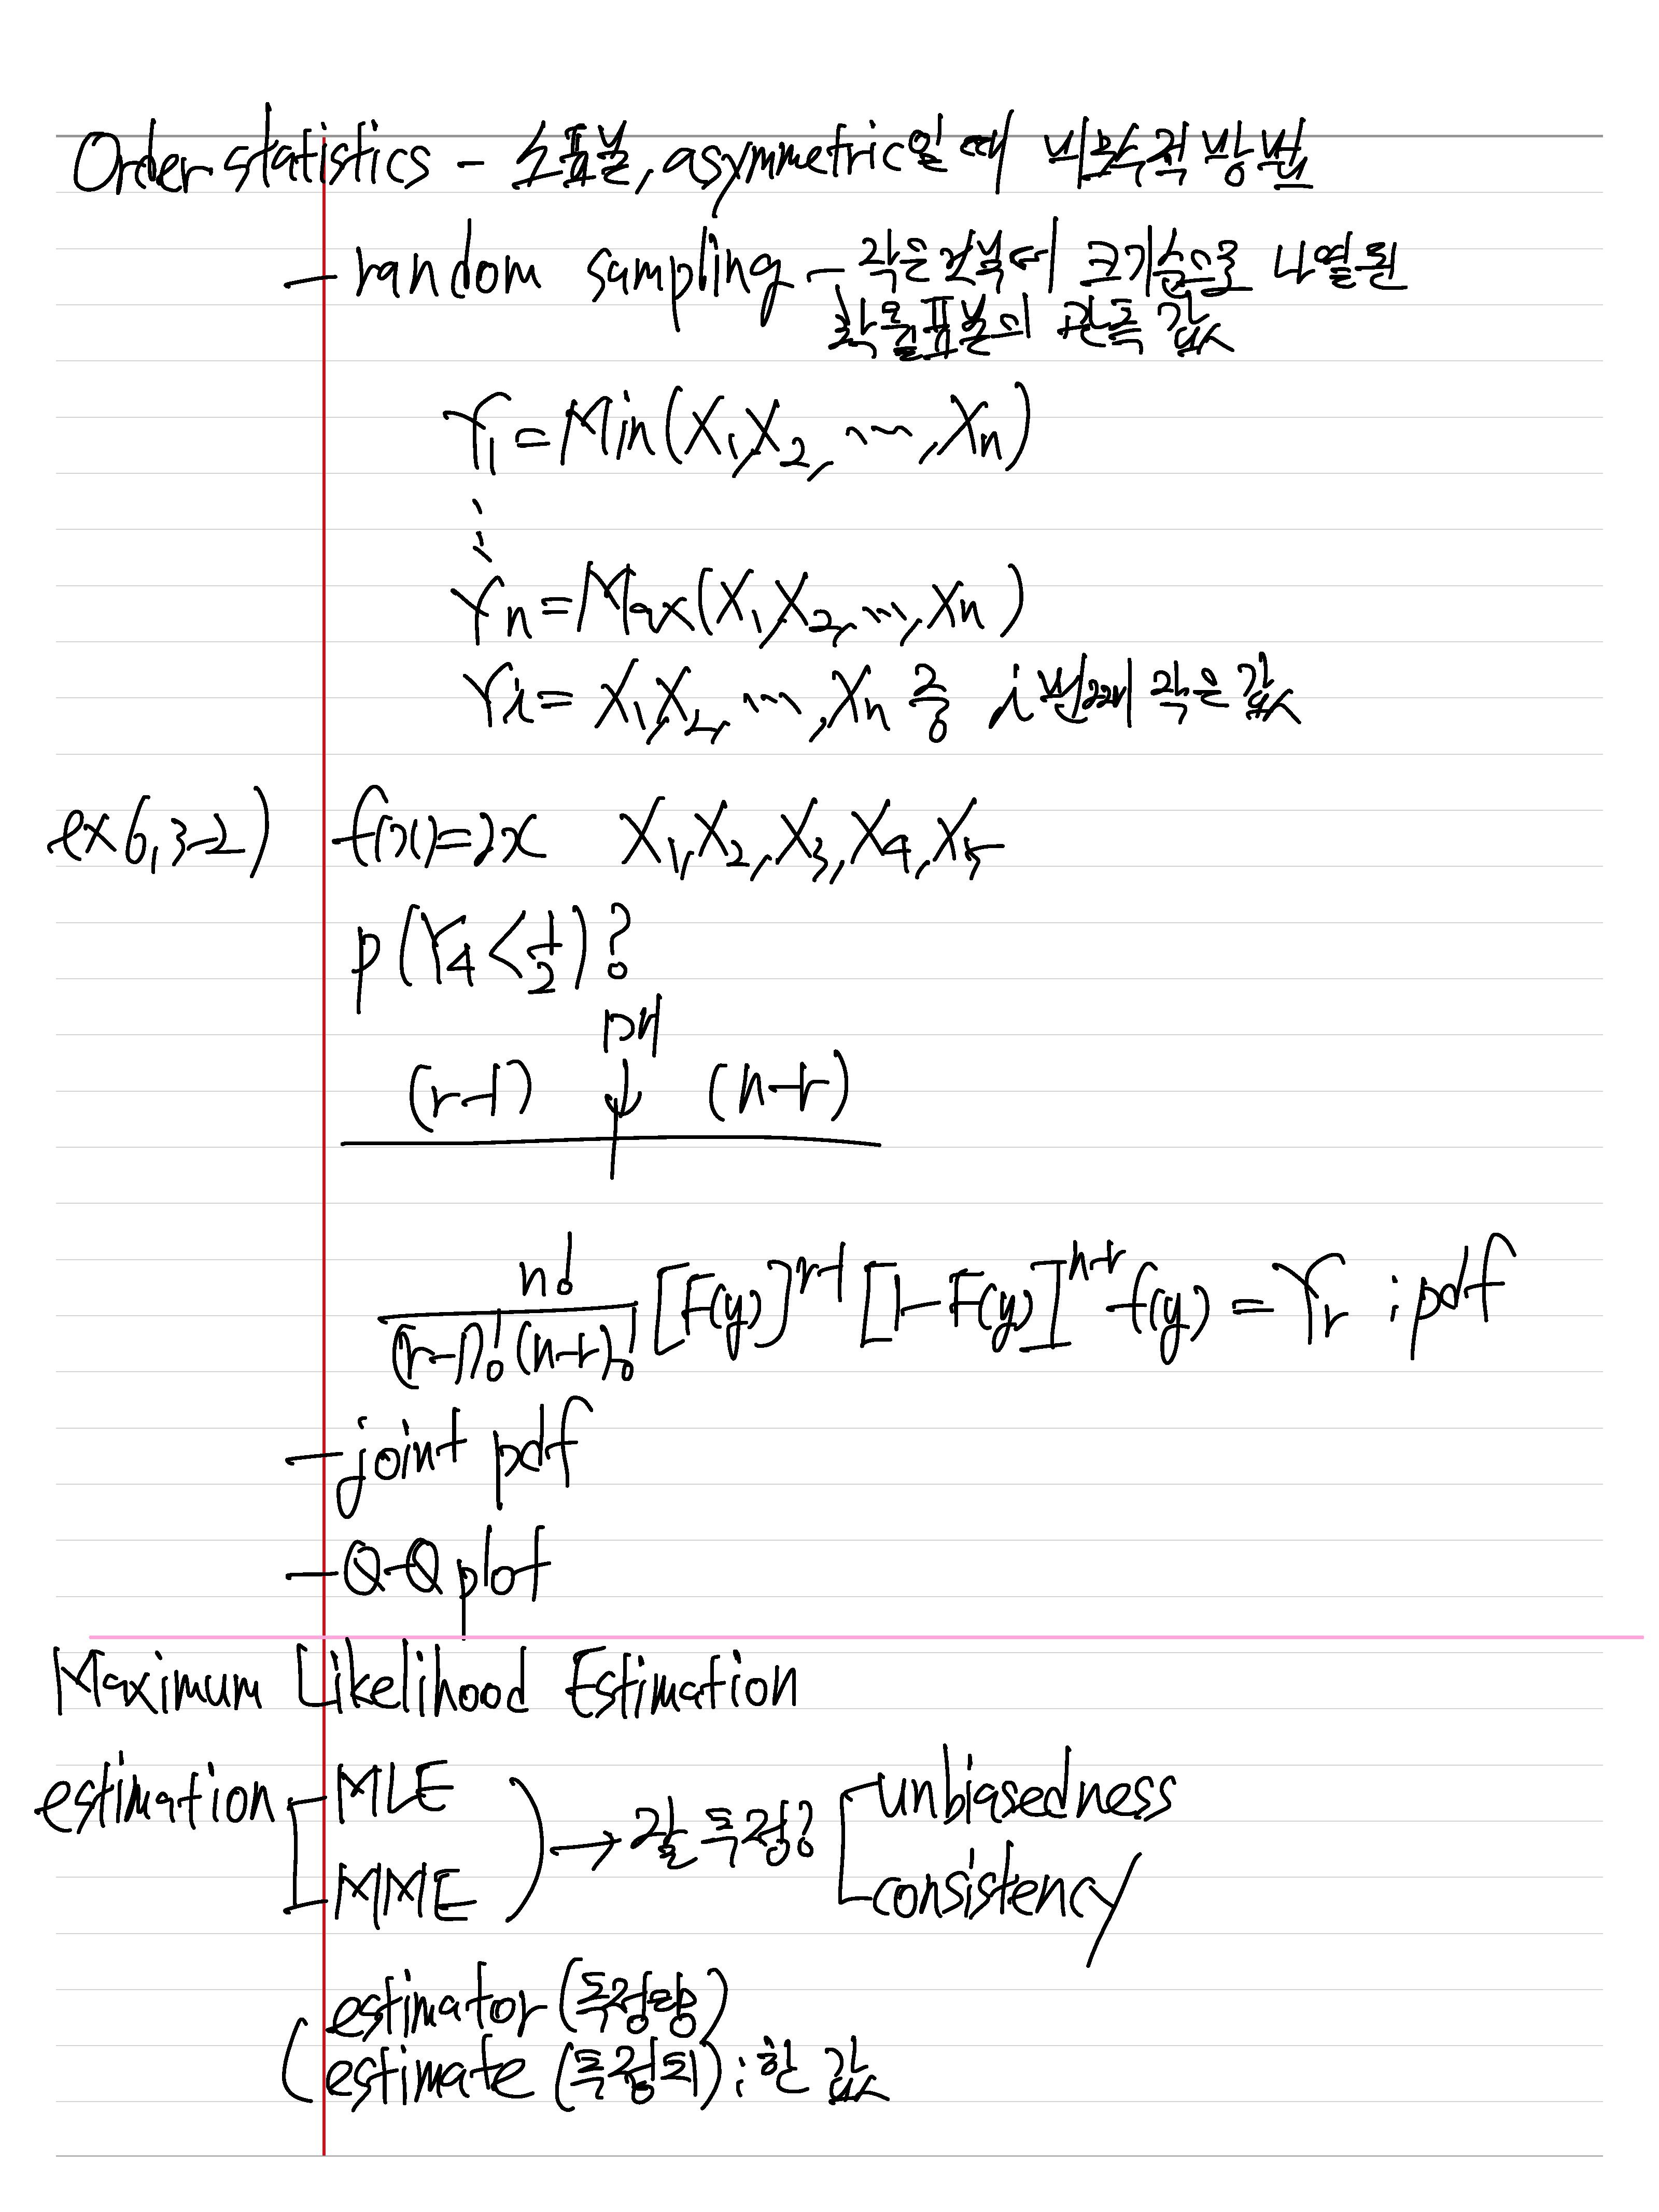 Order statistics - 소표본, asymmetric일 때 비모수적 방법
- random sampling - 작은 것부터 크기순으로 나열된
확률표본의 관측 값
Y₁ = Min(X₁, X₂, ⋯, Xn)
⋮
Yn = Max(X₁, X₂, ⋯, Xn)
Yi = X₁, X₂, ⋯, Xn 중 i번째 작은 값
ex 6.3-2) f(x)=2x X₁, X₂, X₃, X₄, X₅
p(Y₄ < 1/2)?
(r-1) ↓ (n-r)
n!/((r-1)!(n-r)!) [F(y)]^(r-1) [1-F(y)]^(n-r) f(y) = Yr ; pdf
- joint pdf
- Q-Q plot
Maximum Likelihood Estimation
estimation [ MLE ) → 잘 측정? [ unbiasedness
MME consistency
estimator (측정량)
estimate (측정치) ; 한 값